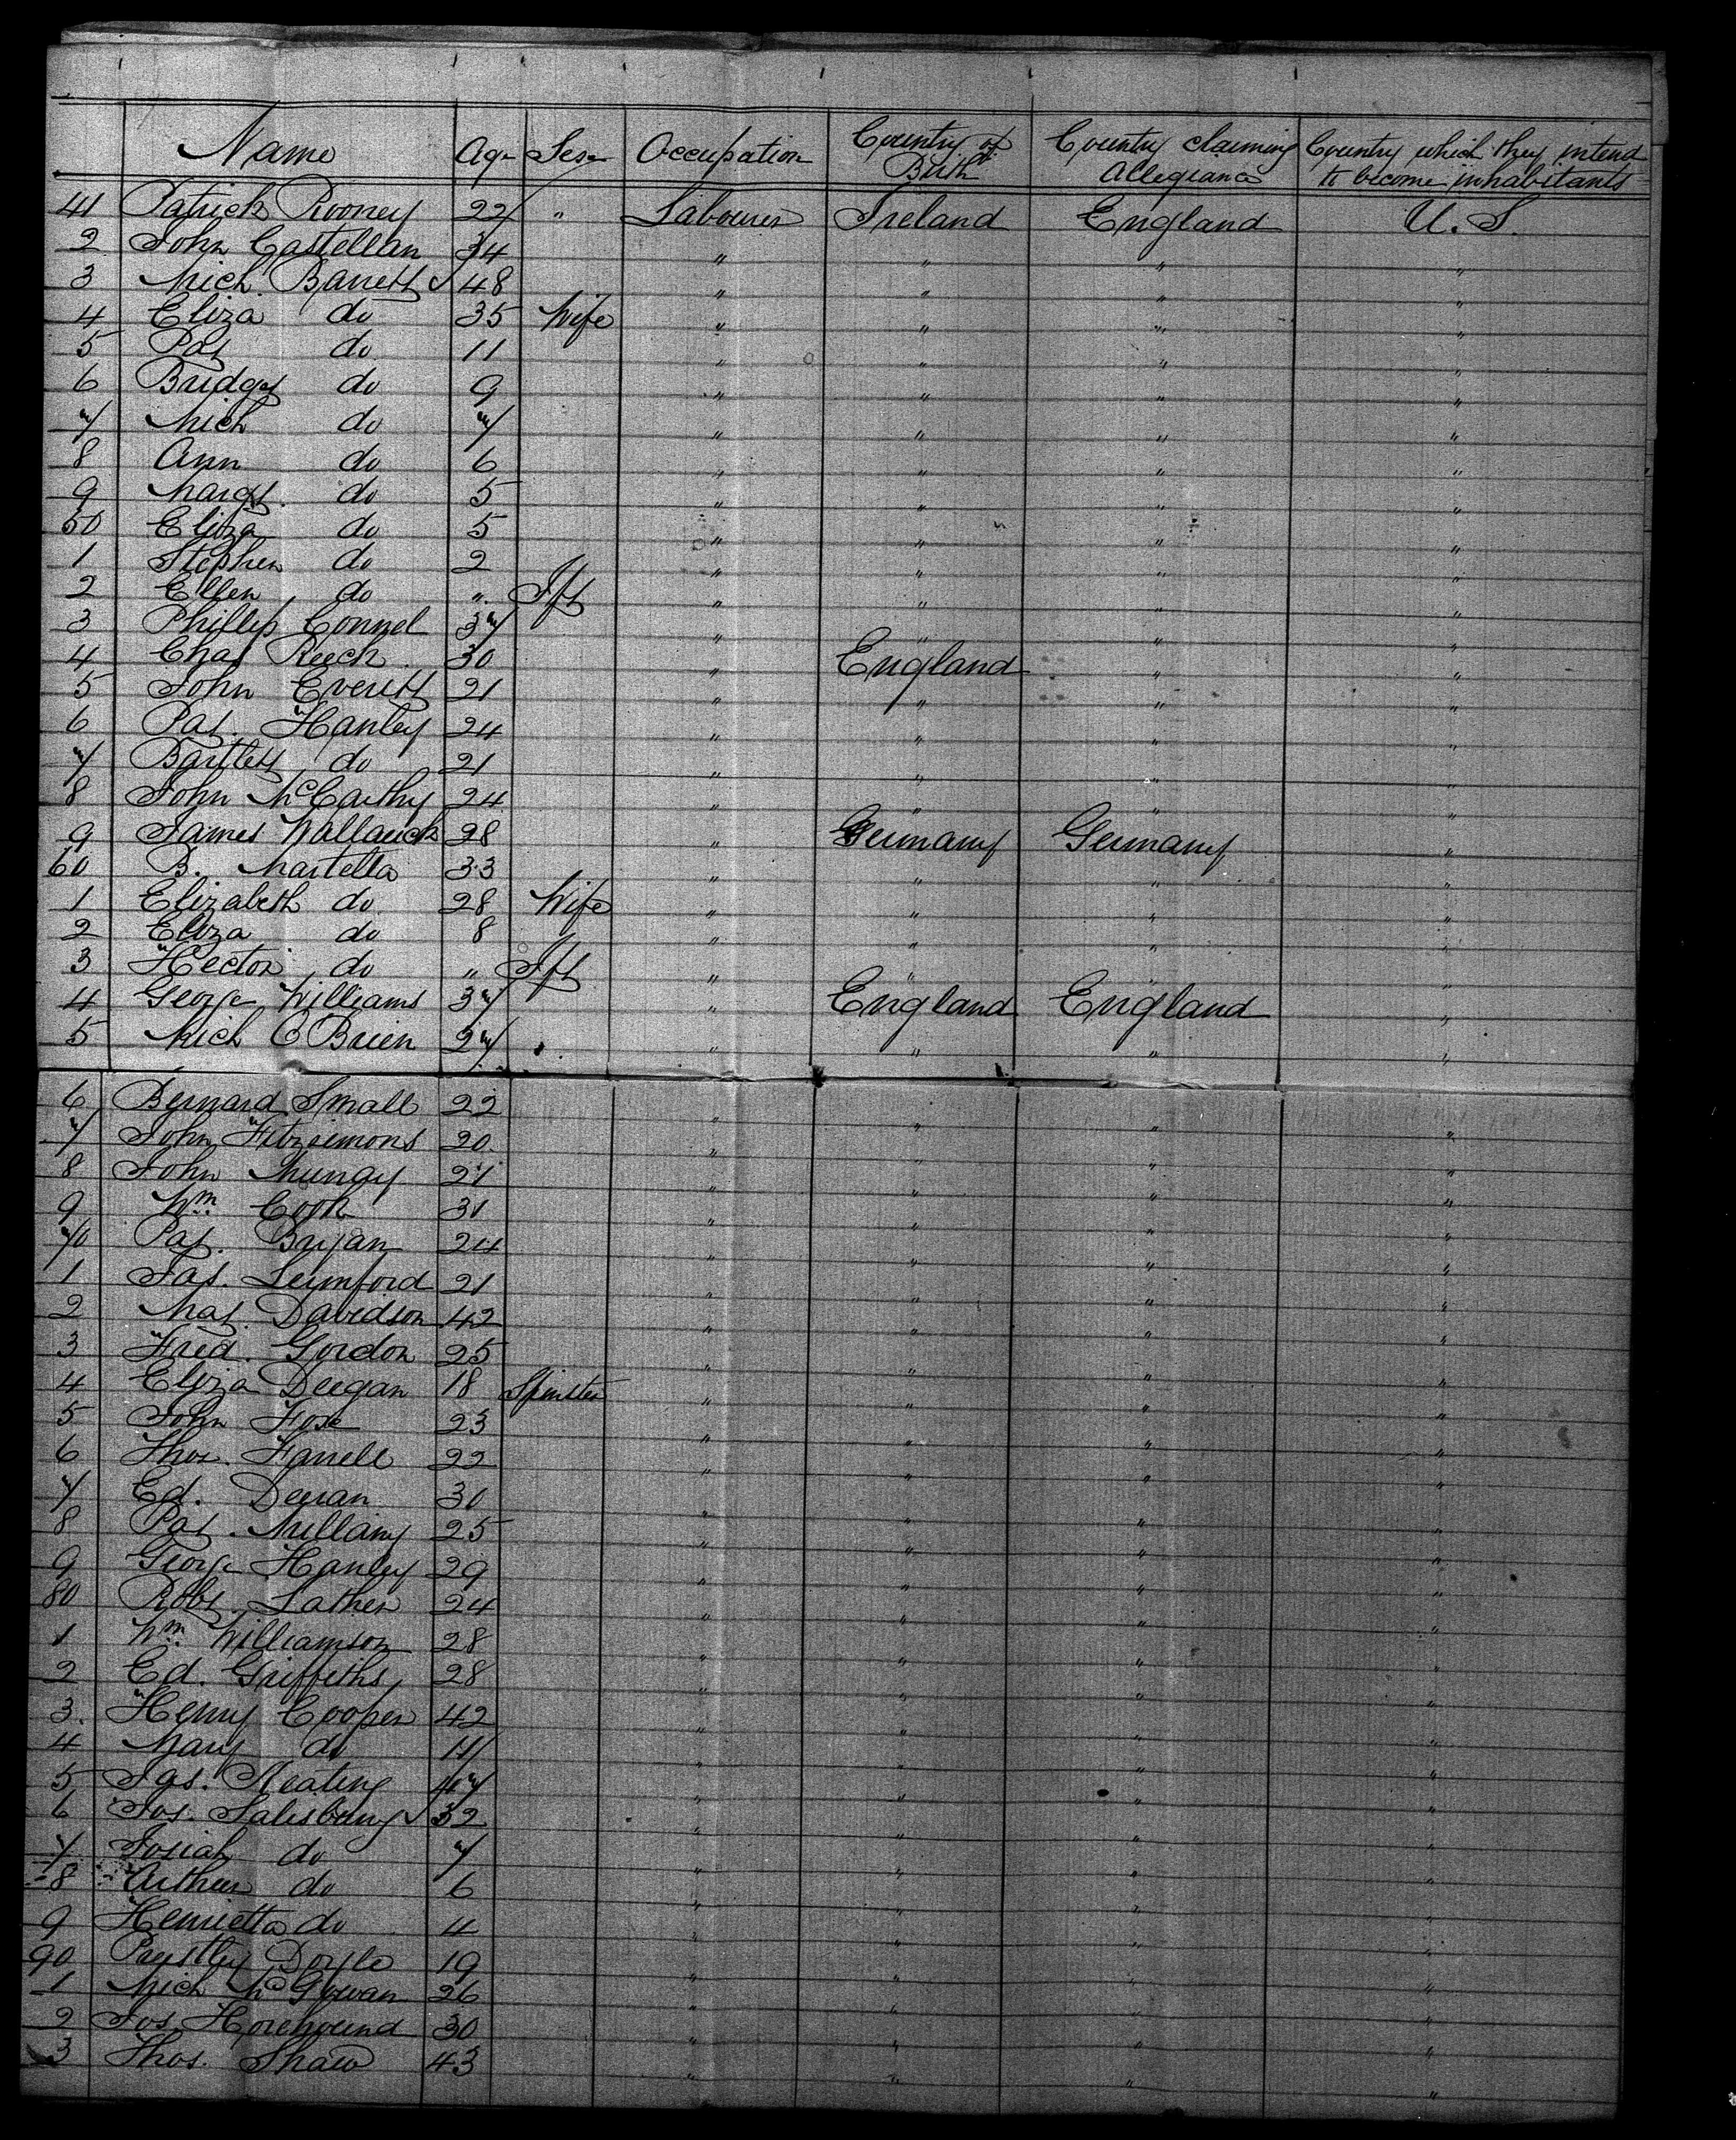 Name Age Sex Occupation Country of Birth Country claiming Allegiance Country which they intend to become inhabitants
41 Patrick Rooney 22 " Labourer Ireland England U.S.
2 John Castellan 34 " " " "
3 Mich. Barrett ✓ 48 " " " "
4 Eliza do 35 Wife " " " "
5 Pat do 11 " " " "
6 Bridget do 9 " " " "
7 Mich do 7 " " " "
8 Ann do 6 " " " "
9 Margt. do 5 " " " "
50 Eliza do 5 " " " "
1 Stephen do 2 " " " "
2 Ellen do " Ift " " " "
3 Phillip Connel 37 " " " "
4 Chas Reech 30 " England " "
5 John Everett 21 " " " "
6 Pat. Hanley 24 " " " "
7 Bartlett do 21 " " " "
8 John McCarthy 24 " " " "
9 James 28 " Germany Germany "
60 B. Martella 33 " " " "
1 Elizabeth do 28 Wife " " " "
2 Eliza do 8 " " " "
3 Hector do " Ift " " " "
4 George Williams 37 " England England "
5 Mich O'Brien 27 " " " "
6 Bernard Small 22 " " " "
7 John Fitzsimons 20 " " " "
8 John 27 " " " "
9 Wm. Cook 31 " " " "
70 Pat. Bryan 24 " " " "
1 Jas. Lumford 21 " " " "
2 Davidson 42 " " " "
3 Fred. Gordon 25 " " " "
4 Eliza Deegan 18 Spinster " " " "
5 John Fox 23 " " " "
6 Thos. Farrell 22 " " " "
7 Ed. 30 " " " "
8 Pat. Mullany 25 " " " "
9 George Hanley 29 " " " "
80 Robt. Lather 24 " " " "
1 Wm. Williamson 28 " " " "
2 Ed. Griffiths 28 " " " "
3. Henry Cooper 42 " " " "
4 Mary do 11 " " " "
5 Jas. Keating 47 " " " "
6 Jos. Salisbury ✓ 32 " " " "
7 Josiah do 7 " " " "
8 Arthur do 6 " " " "
9 Henrietta do 4 " " " "
90 Prestley Doyle 19 " " " "
1 Mich McGowan 26 " " " "
2 Jos Horehound 30 " " " "
3 Thos. Shaw 43 " " " "